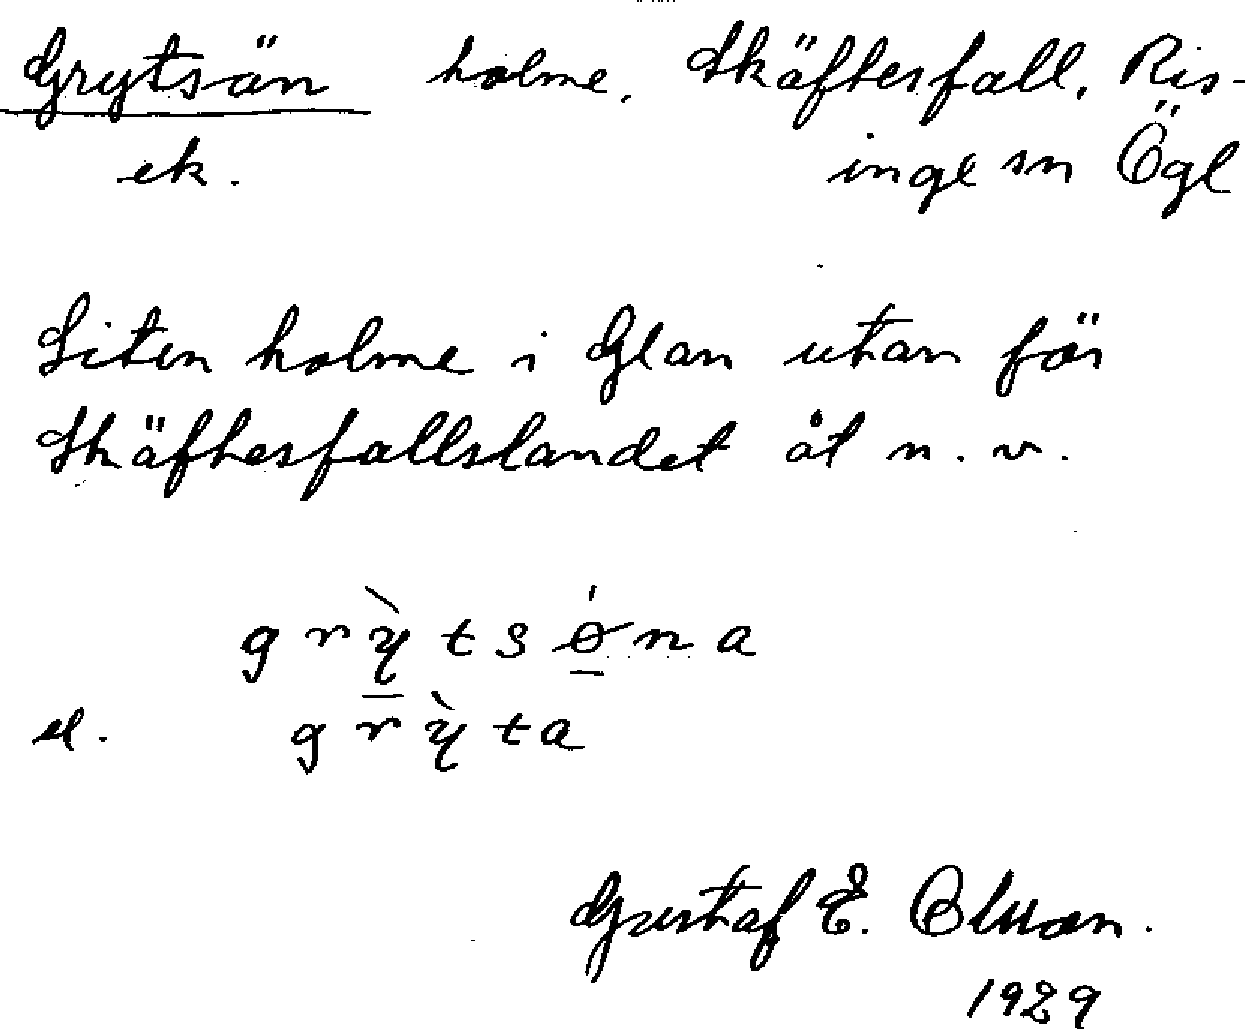 Grytsön holme. Skäftesfall, Ris-
ek. inge sn Ögl
Liten holme i Glan utan för
Skäftesfallslandet åt n. v.
grỳtsǿna
el. grỳta
Gustaf E. Olsson.
1929